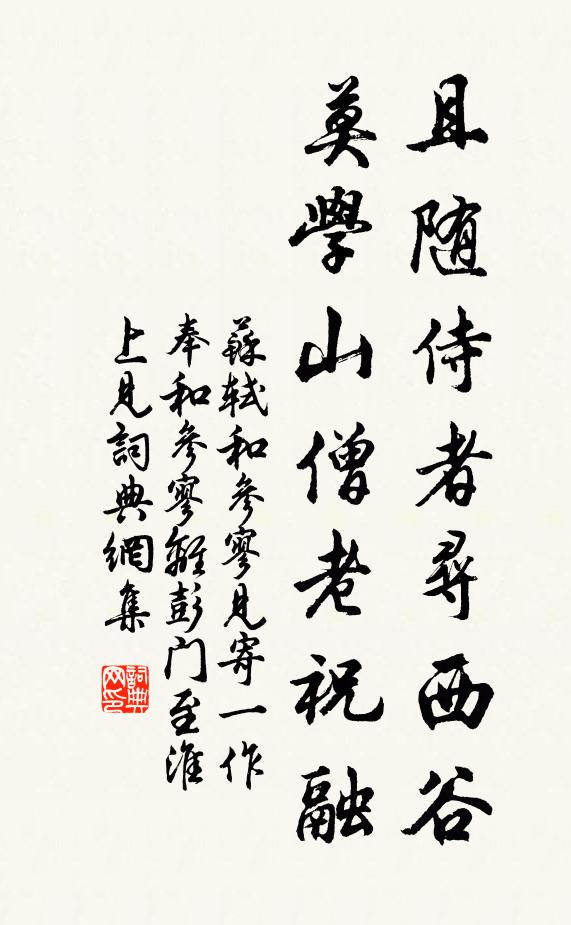 且随侍者尋西谷
莫學山僧老祝融
蘇軾和參寥見寄一作
奉和參寥離彭门至淮
上見詞典網集
詞典
网印